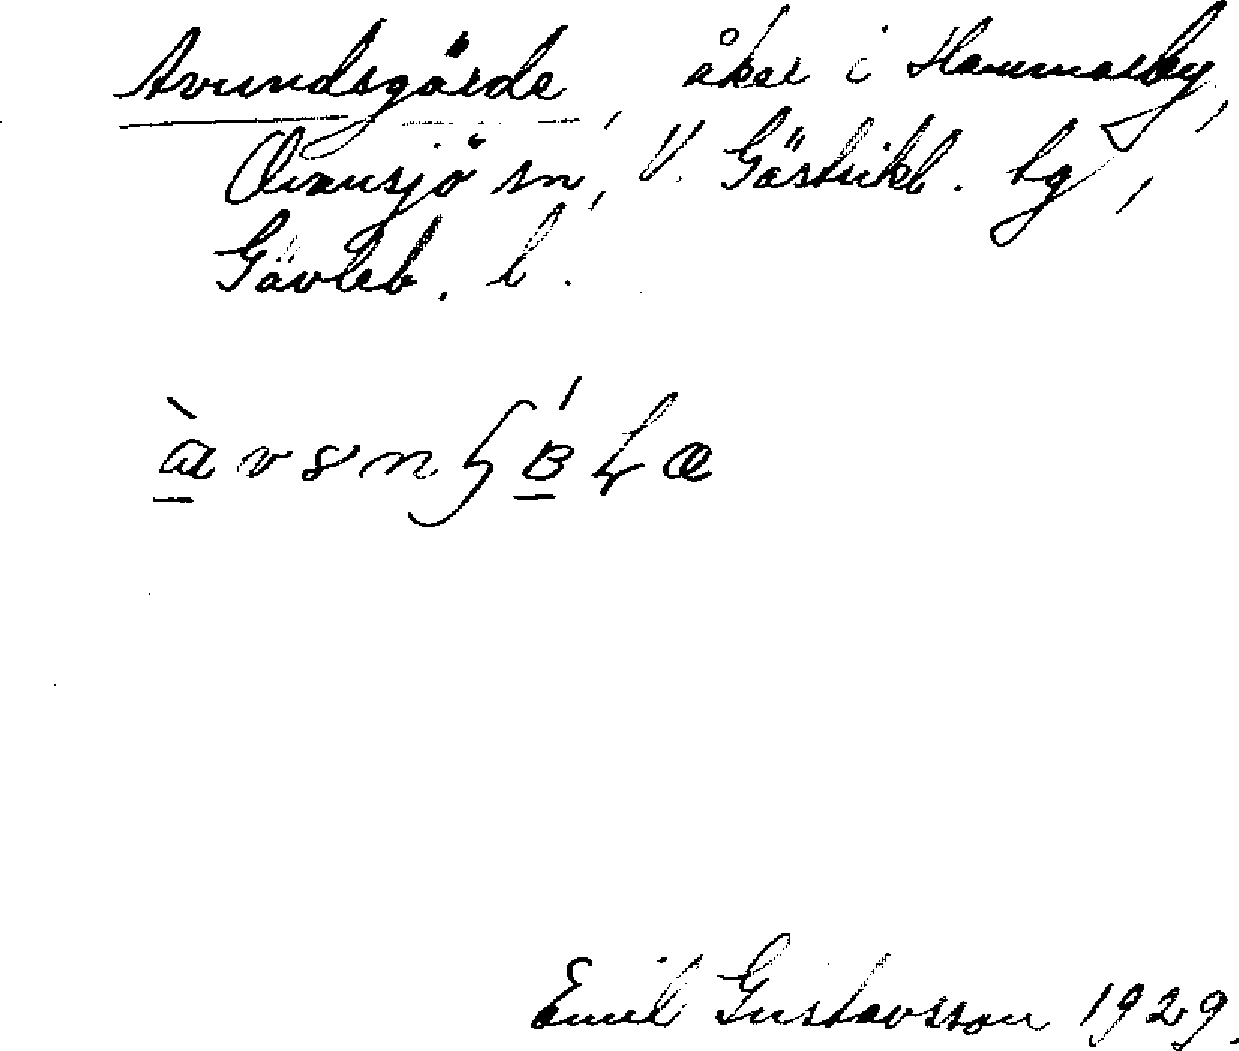 Avundsgärde, åker i Hammarby,
Ovansjö sn, V. Gästrikl. tg,
Gävleb. l.
Emil Gustavsson 1929.